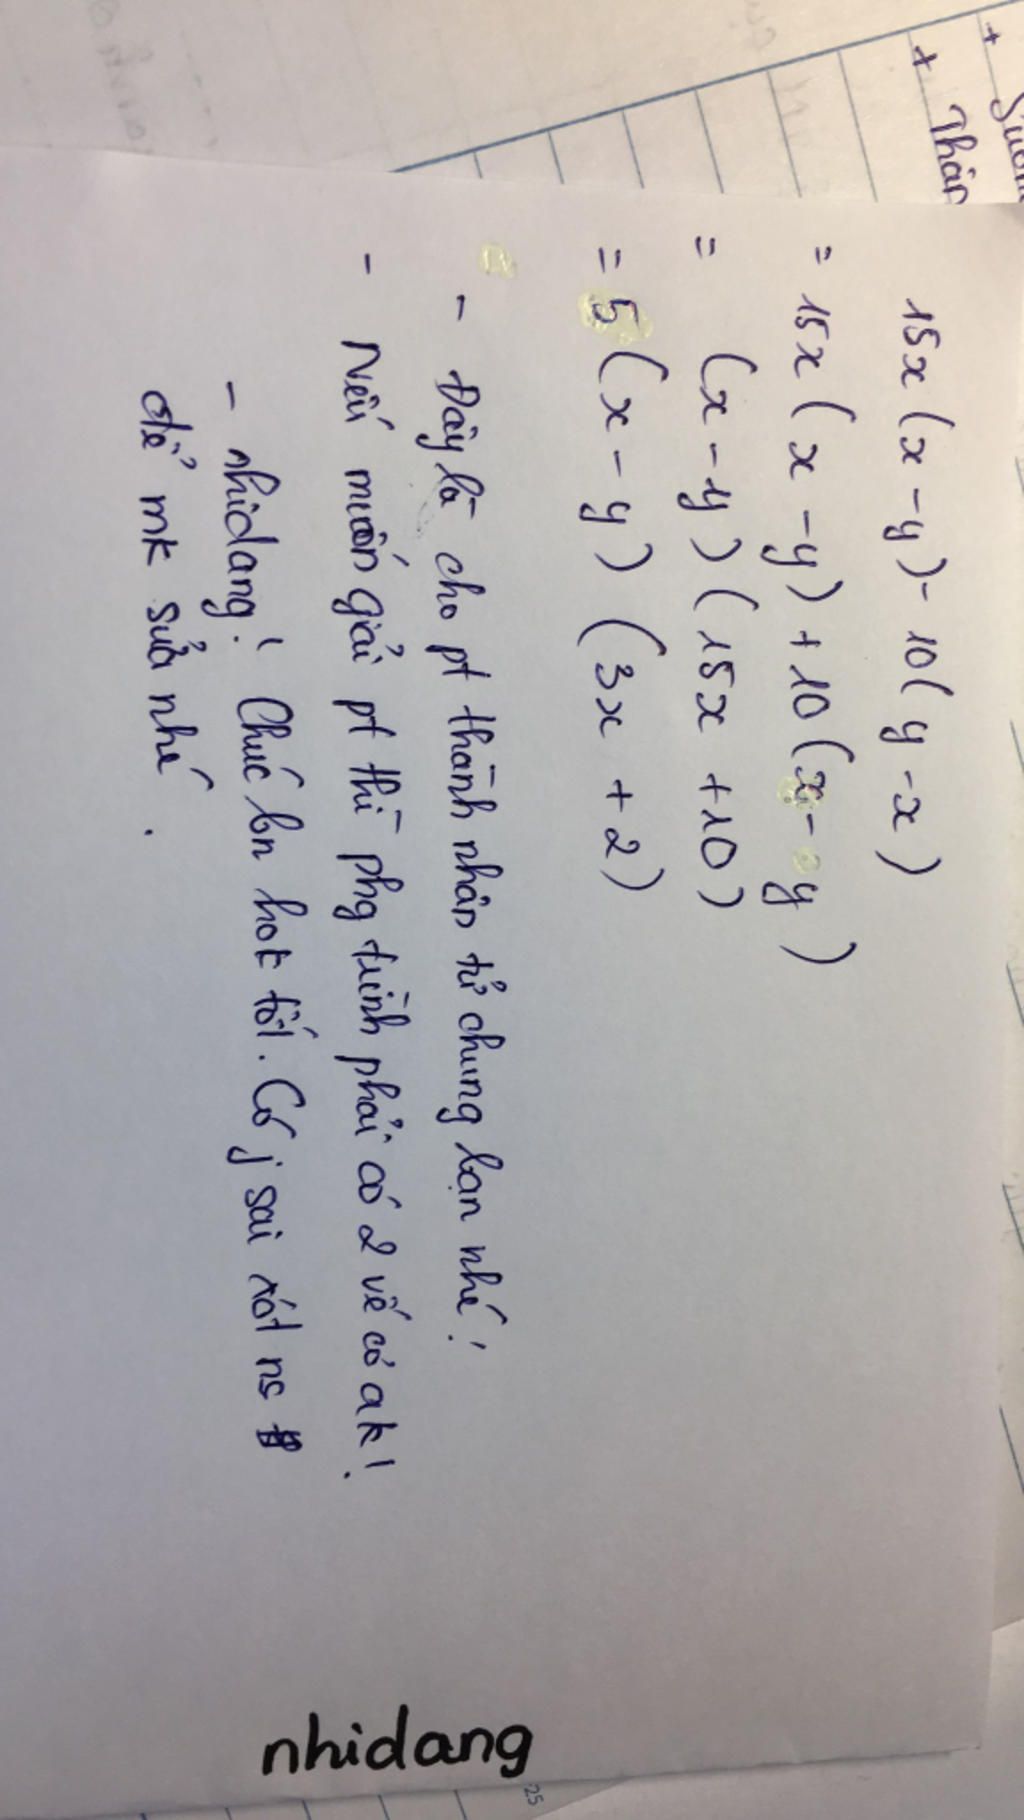 15x(x-y)-10(y-x)
= 15x(x-y)+10(x-y)
= (x-y)(15x+10)
= 5(x-y)(3x+2)
- Đây là cho pt thành nhân tử chung bạn nhé!
- Nếu muốn giải pt thì phg trình phải có 2 vế cơ ak!
- nhidang! Chúc bn hok tốt. Có j sai xót ns
để mk sửa nhé.
nhidang
+ Thân
25